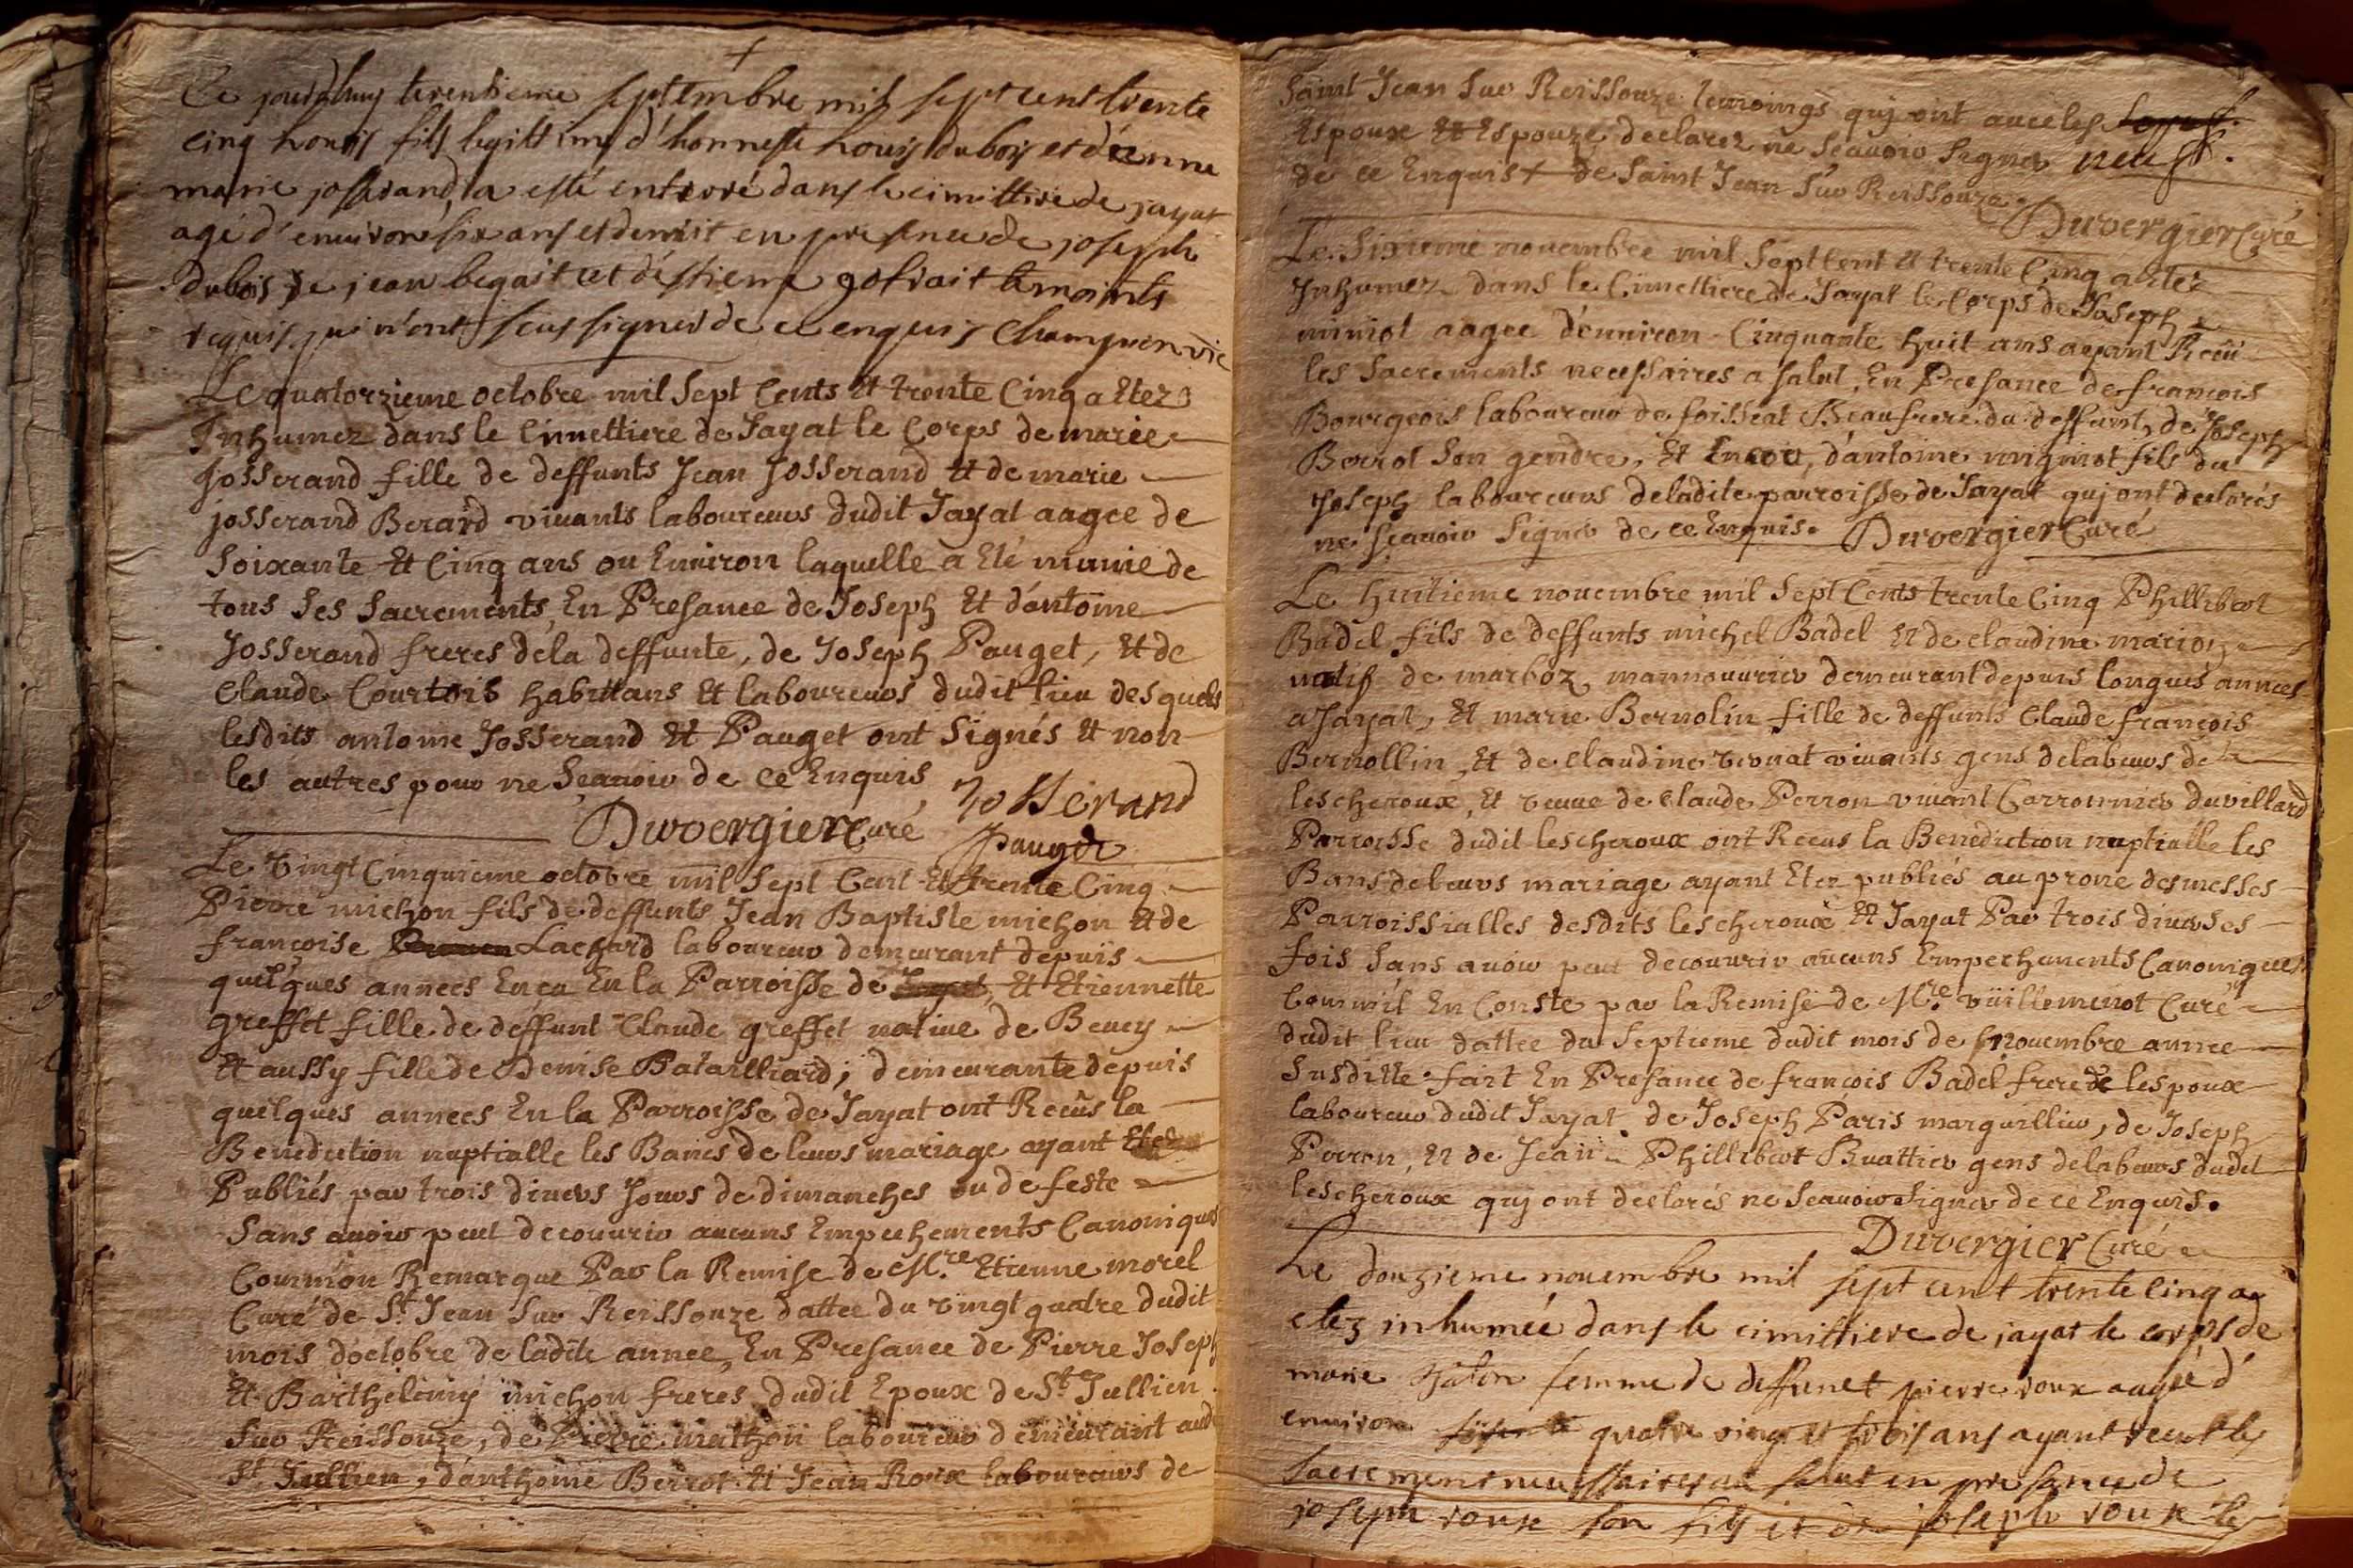 Ce jourdhuy trentieme septembre mil sept cens trente
cinq houis fils legittime d'honneste houis dubois et d'
marie josserand, a esté enterré dans le cimittire de jayat
agé d'environ six ans et demit en presence de joseph
dubois de jean begait et d'éstiene gofrait temoints
requis qui n'ont seus signer de ce enquis
Le quatorzieme octobre mil Sept Cents Et trente Cinq a Etez
Inhumez dans le Cimettiere de Jayat le Corps de marie
Josserand fille de deffunts Jean Josserand Et de marie
josserand Berard vivants laboureurs dudit Jayat aagee de
Soixante Et Cinq ans ou Environ laquelle a Eté munie de
tous Ses Sacrements, En Presance de Joseph Et d'antoine
Josserand freres dela deffunte, de Joseph Pauget, Et de
Claude Courtois habittans Et laboureurs dudit lieu desquels
lesdits antoine Josserand Et Pauget ont Signés Et non
les autres pour ne Scavoir de ce Enquis Josserand
Duvergier Curé Pauget
Le vingt Cinquieme octobre mil Sept Cent Et trente Cinq
Pierre michon fils de deffunts Jean Baptiste michon Et de
françoise Lachard laboureur demeurant depuis
quelques annees En ca En la Parroisse de Et Etiennette
greffet fille de deffunt Claude greffet native de Beney
Et aussy fille de Denise Batailliard; demeurante depuis
quelques annees En la Parroisse de Jayat ont Recûs la
Benediction nuptialle les Bancs de leurs mariage ayant
Publiés par trois divers Jours de dimanches ou de feste
Sans avoir peut decouvrir aucuns Empechements Canoniques
Comm'on Remarque Par la Remise de Mre Etienne morel
Curé de St Jean Sur Reissouze dattee du vingt quatre dudit
mois d'octobre de ladite annee, En Presance de Pierre Joseph
Et Barthelemy michon freres dudit Epoux de St Jullien
Sur Reissouze, de Pierre mathon laboureur demeurant aud
St Jullien, d'anthoine Berrot Et Jean Roux laboureurs de
Saint Jean Sur Reissouze temoings quj ont avec les
Espoux Et Espouze declarez ne Scavoir Signer
de ce Enquis de Saint Jean Sur Reissouze
Duvergier Curé
Le Sixieme novembre mil Sept Cent Et trente Cinq a Etez
Inhumez dans le Cimettiere de Jayat le Corps de Joseph
miniot aagee d'environ Cinquante huit ans ayant Recu
les Sacrements necessaires a salut, En Presance de françois
Bourgeois laboureur de foissiat Beaufrere du deffunt, de Joseph
Berrot Son gendre, Et Encor, d'antoine migniot fils du
Joseph laboureurs deladite parroisse de Jayat quj ont declarés
ne Scavoir Signer de ce Enquis. Duvergier Curé
Le huitieme novembre mil Sept Cents trente Cinq Phillibert
Badel fils de deffunts michel Badel Et de claudine
natif de marboz mannouvrier demeurant depuis longues annees
a Jayat, Et marie Bernolin fille de deffunts Claude françois
Bernollin, Et de claudine vivants gens delabeurs de
lescheroux, Et veuve de Claude Perron vivant Carronnier du villard
Parroisse dudit lescheroux ont Recus la Benediction nuptialle les
Bans deleurs mariage ayant Etez publiés au prone des messes
Parroissialles desdits lescheroux Et Jayat Par trois diverses
fois Sans avoir peut decouvrir aucuns Empechements Canoniques
Comm'il En Conste par la Remise de Mre vüillemenot Curé
dudit lieu dattee du Septieme dudit mois de novembre annee
Susditte fait En Presance de françois Badel frere de lespoux
laboureur dudit Jayat, de Joseph Paris marguillier, de Joseph
Perron, Et de Jean Phillibert Buattier gens delabeurs dudit
lescheroux quj ont declarés ne Scavoir Signer de ce Enquis.
Duvergier Curé
Le douzieme novembre mil sept cent trente cinq a
etez inhumée dans le cimittiere de jayat le corps de
marie femme de deffunct pierre roux aagée d'
environ quatre vingt et trois ans ayant receut les
sacrement neussaires au salut en presance de
joseph roux son fils et de joseph roux le